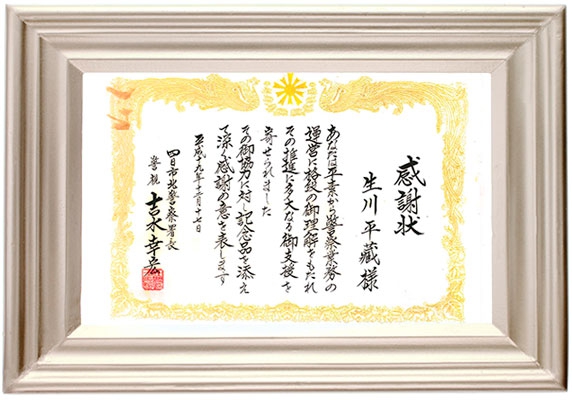 感謝状
生川平蔵様
あなたは平素から警察業務の
運営に格段の御理解をもたれ
その推進に多大なる御支援を
寄せられました
その御協力に対し記念品を添え
て深く感謝の意を表します
平成十九年十二月十七日
四日市北警察署長
警視 吉水幸宏